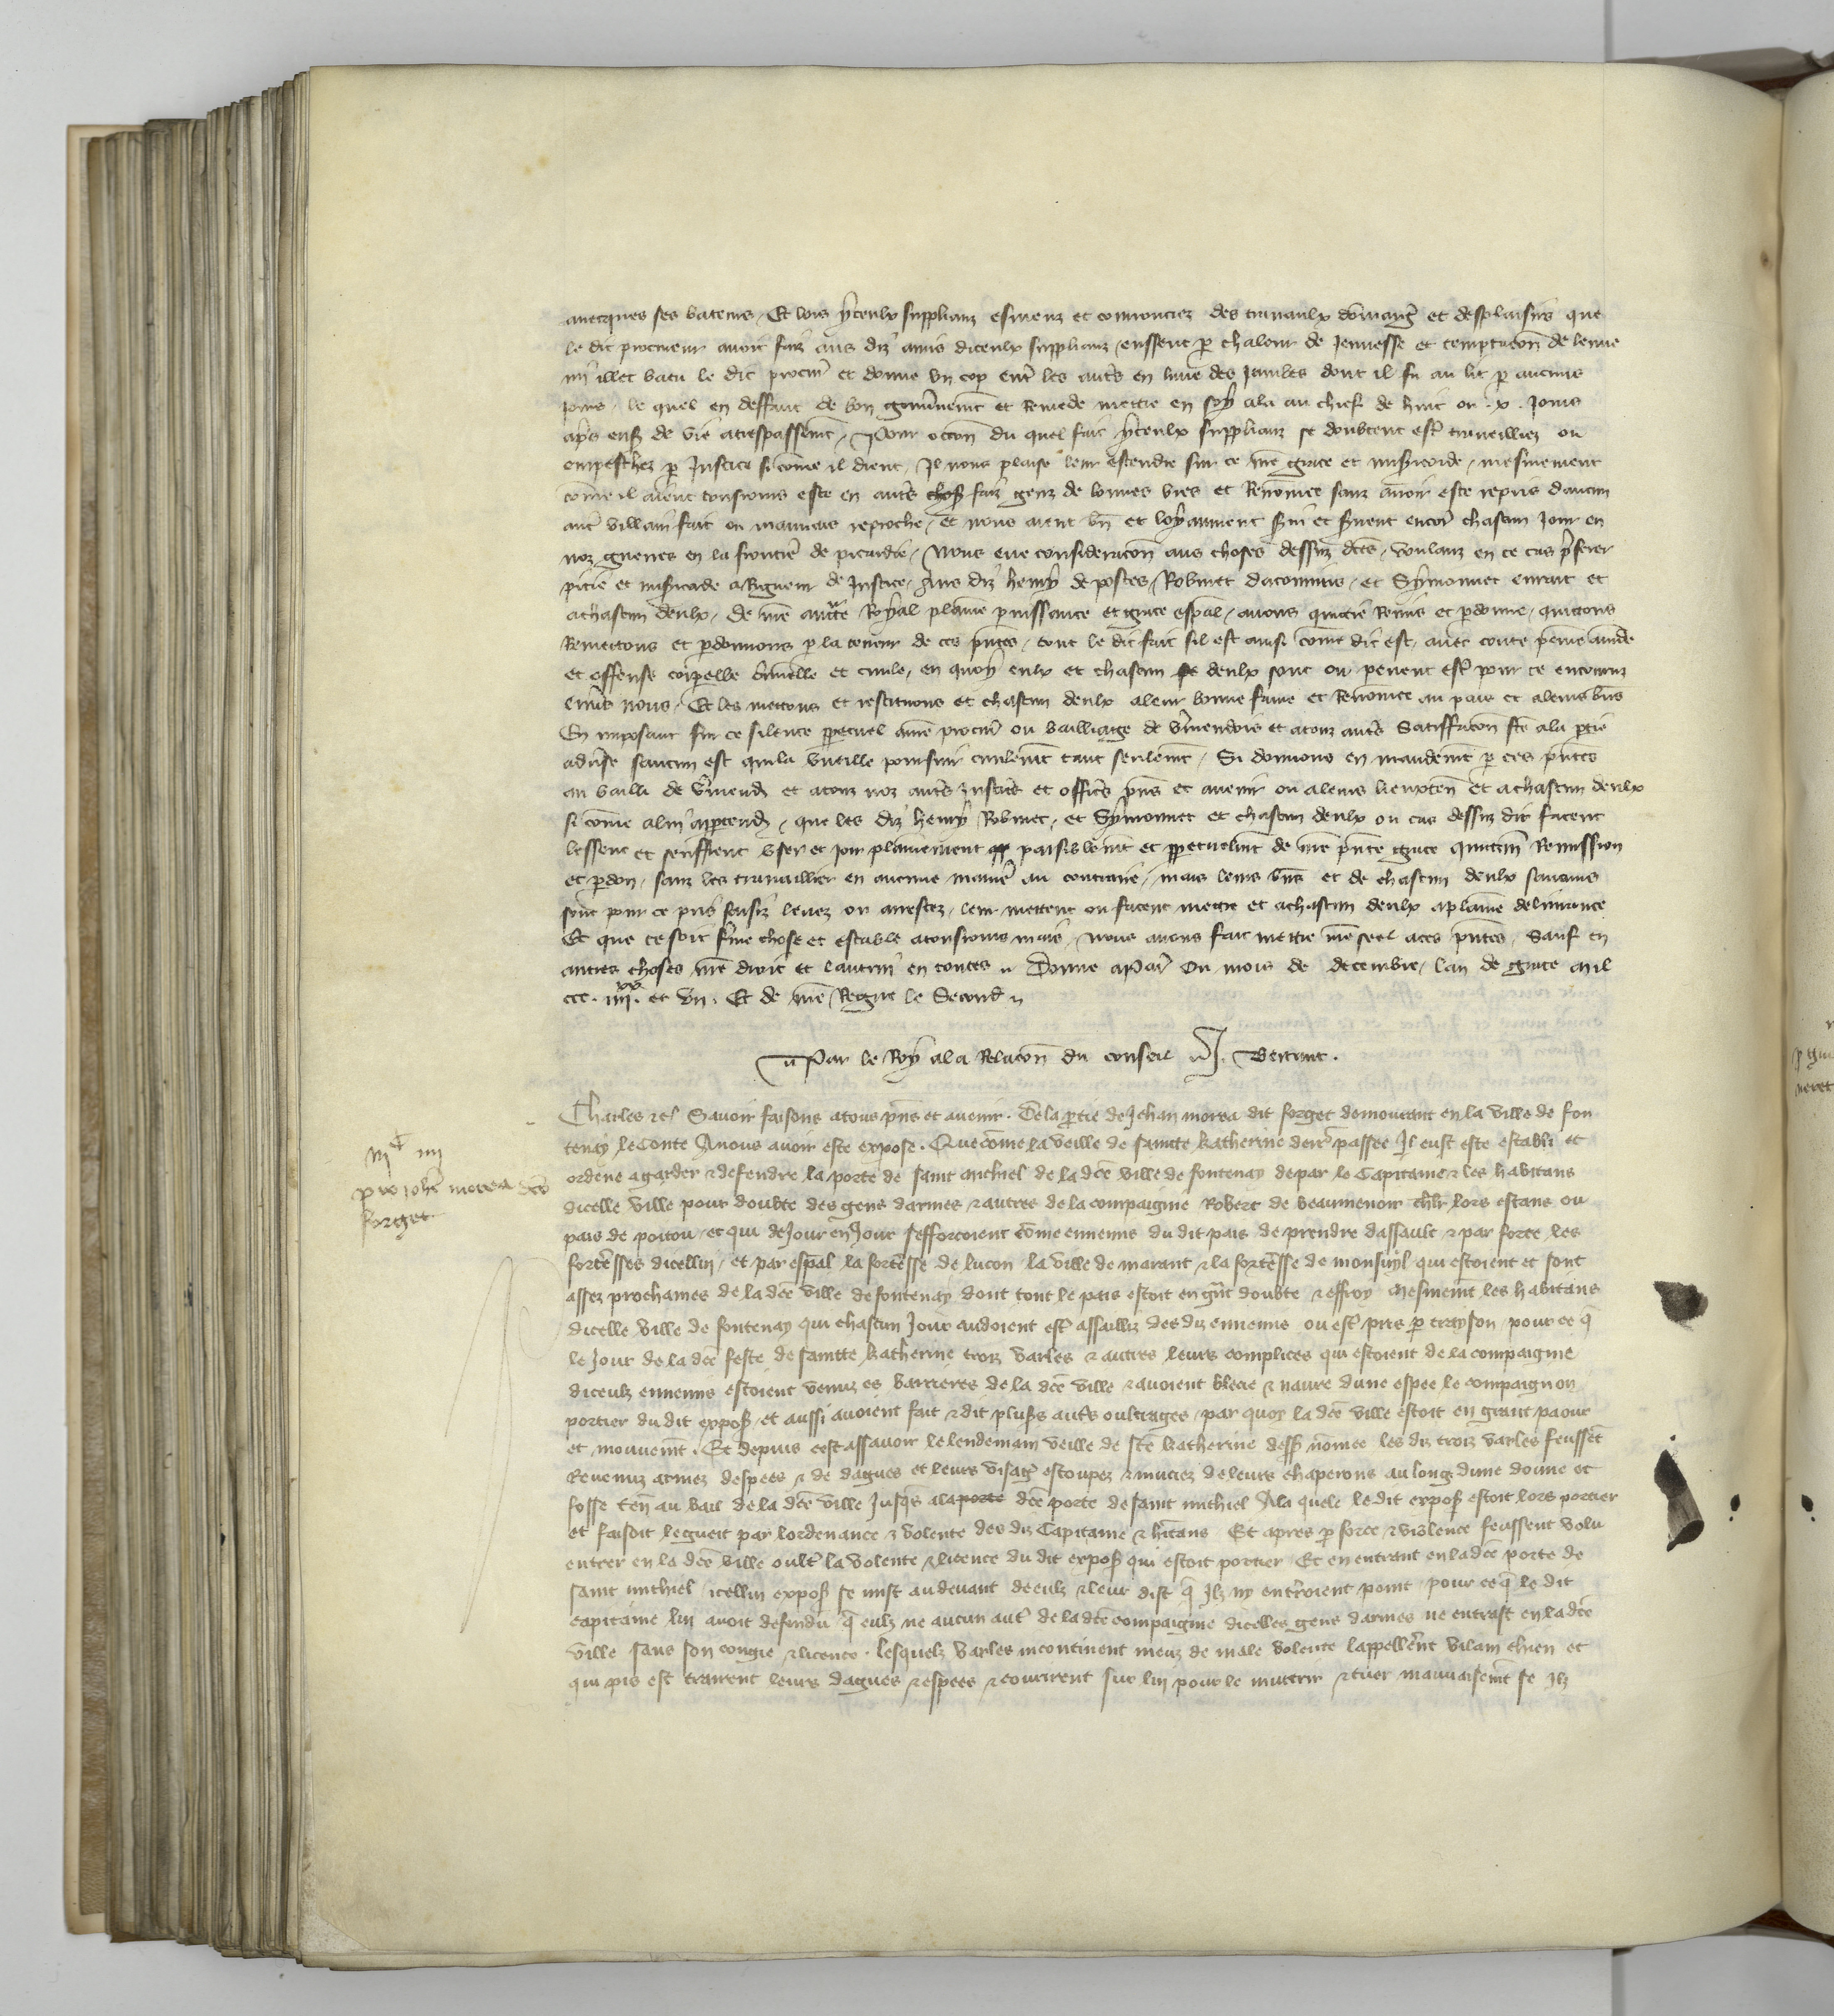 avecques ses bateurs. Et lors yceulx supplianz esmeuz et courrouciez des travaulx dommages et desplaisirs que
le dit procureur avoit faiz aus diz amis diceulx supplianz, eussent p chaleur de Jeunesse et temptacon de lenne
mi illec batu le dit procur et donne un cop entr les autrs en lune des Jambes dont il fu au lit p aucuns
Jours. le quel en deffaut de bon gouvnemt et Remede mettre en soy ala au chief de huit ou .x. Jours
aprs ensz de vie a trespassemt, Pour occon du quel fait yceulx supplianz se doubtent estr travailliez ou
empeschez p Justice si come il dient, Il nous plaise leur estendre sur ce nre grace et misericorde, mesmement
come il aient tousiours este en autrs choses faiz genz de bonnes vies et Renomee sanz avoir este repris daucun
autr villain fait ou mauvais reproche, et nous aient bn et loyaument svi et svent encor chascun Jour en
noz guerres en la frontier de picardie, Nous eue consideracon aus choses dessuz dces, voulanz en ce cas prferer
pitie et misericorde a Rigueur de Justice, Aus diz henry de postes, Robinet dacomitis, et Symonnet enrait et
a chascun deulx, de nre auctte Royal plaine puissance et grace espal, avons quittie Remis et pdonne, quittons
Remettons et pdonnons p la teneur de ces pntes, tout le dit fait sil est ainsi come dit est, avec toute peine amde
et offense corpelle criminelle et civile, en quoy eulx et chascun deulx sont ou pevent estr pour ce encouruz
envrs nous, Et les mettons et restituons et chascun deulx a leur bonne fame et Renomee au pais et a leurs bns
En imposant sur ce silence ppetuel a nre procur ou bailliage de Vrmendois et a touz autrs Satiffacon fte a la ptie
advrse saucun est qui la vueille poursuir civilemt tant seulemt, Si donnons en mandemt p ces pntes
au bailli de Vrmend et a touz noz autrs Justics et officrs pns et avenir ou a leurs lieuxten et a chascun deulx
si come a lui apptendr, que les diz henry Robinet, et Symonnet et chascun deulx ou cas dessuz dit facent
lessent et seuffrent user et Joir plainement paisiblemt et ppetuelmt de nre pnte grace quittem Remission
et pdon, sanz les travaillier en aucune manier au contraire, mais leurs bns et de chascun deulx saucuns
sont pour ce pris saisiz levez ou arrestez, leur mettent ou facent mettre et a chascun deulx a plaine delivrance
Et que ce soit frme chose et estable a tousiours mais, Nous avons fait mettre nre seel a ces pntes, Sauf en
autres choses nre droit et lautrui en toutes. Donne a Par Ou mois de decembre, lan de grace mil
ccc. iiij xx. et un. Et de nre Regne le Second
Par le Roy a la Relacon du conseil J. Vertant.
Charles etc Savoir faisons a tous pns et avenir. De la ptie de Jehan morea dit forget demourant en la ville de fon
tenay le Conte A nous avoir este expose. Que come la veille de saintte katherine derr passee Il eust este establi et
ordene a garder & defendre la porte de saint michiel de la dce ville de fontenay de par le Capitaine & les habitans
dicelle ville pour doubte des gens darmes, & autres de la compaignie Robert de beaumenoir chlr lors estans ou
pais de poitou, et qui de Jour en Jour sefforcoient come ennemis du dit pais de prendre dassault & par force les
fortresses dicellui, et par espal la fortresse de lucon la ville de marant & la fortresse de monsuyl qui estoient et sont
assez prochaines de la dce ville de fontenay dont tout le pais estoit en grnt doubte & effroy mesmemt les habitans
dicelle ville de fontenay qui chascun Jour cudoient estr assailliz des diz ennemis ou estr pris p trayson pour ce q
le Jour de la dce feste de saintte katherine trois varles & autres leurs complices qui estoient de la compaignie
diceulz ennemis estoient venuz es barrieres de la dce ville & avoient blecie & navre dune espee le compaignon
portier du dit expos, et aussi avoient fait & dit plus autrs oultrages, par quoy la dce ville estoit en grant paour
et mouvemt. Et depuis cest assavoir le lendemain veille de ste katherine dess nomee les diz trois varles feusset
Revenuz armez despees & de dagues et leurs visages estoupez & muciez de leurs chaperons au long dune douue et
fosse ten au bail de la dce ville Jusqs a la porte dce porte de saint michiel A la quele le dit expos estoit lors portier
et faisoit le gueit par lordenance & volente des diz Capitaine & hitans Et apres p force & violence feussent volu
entrer en la dce ville oultr la volente & licence du dit expos qui estoit portier Et en entrant en la dce porte de
saint michiel icellui expos se mist au devant deeulz & leur dist q Ilz ny entrroient point pour ce q le dit
capitaine lui avoit defendu q eulz ne aucun autr de la dce compaignie dicelles gens darmes ne entrast en la dce
ville sans son congie & licence. lesquelz varles incontinent meuz de male volente lappellernt vilain chien et
qui pis est trairent leurs dagues & espees & coururent sur lui pour le mutrir & tuer mauvaisemt se Ilz
iij c iiij
pro johe morea dco
forget